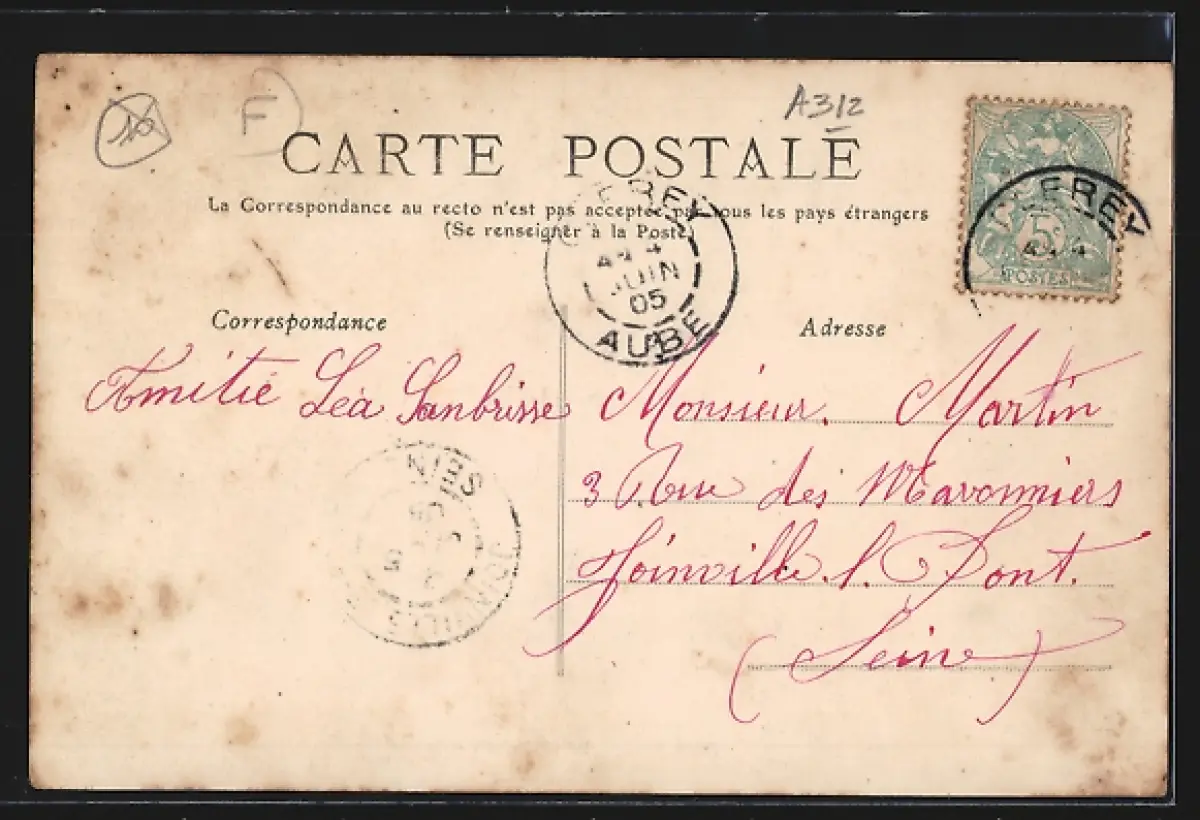 10
F
A312
CARTE POSTALE
La Correspondance au recto n'est pas acceptée par tous les pays étrangers
(Se renseigner à la Poste)
CLEREY
JUIN
05
AUBE
CLEREY
5c
POSTES
Correspondance
Adresse
Amitié Léa Sanbrisse
Monsieur. Martin
3 Rue des Maronniers
Joinville. l. Pont.
(Seine)
SEIN
JOINVILLE